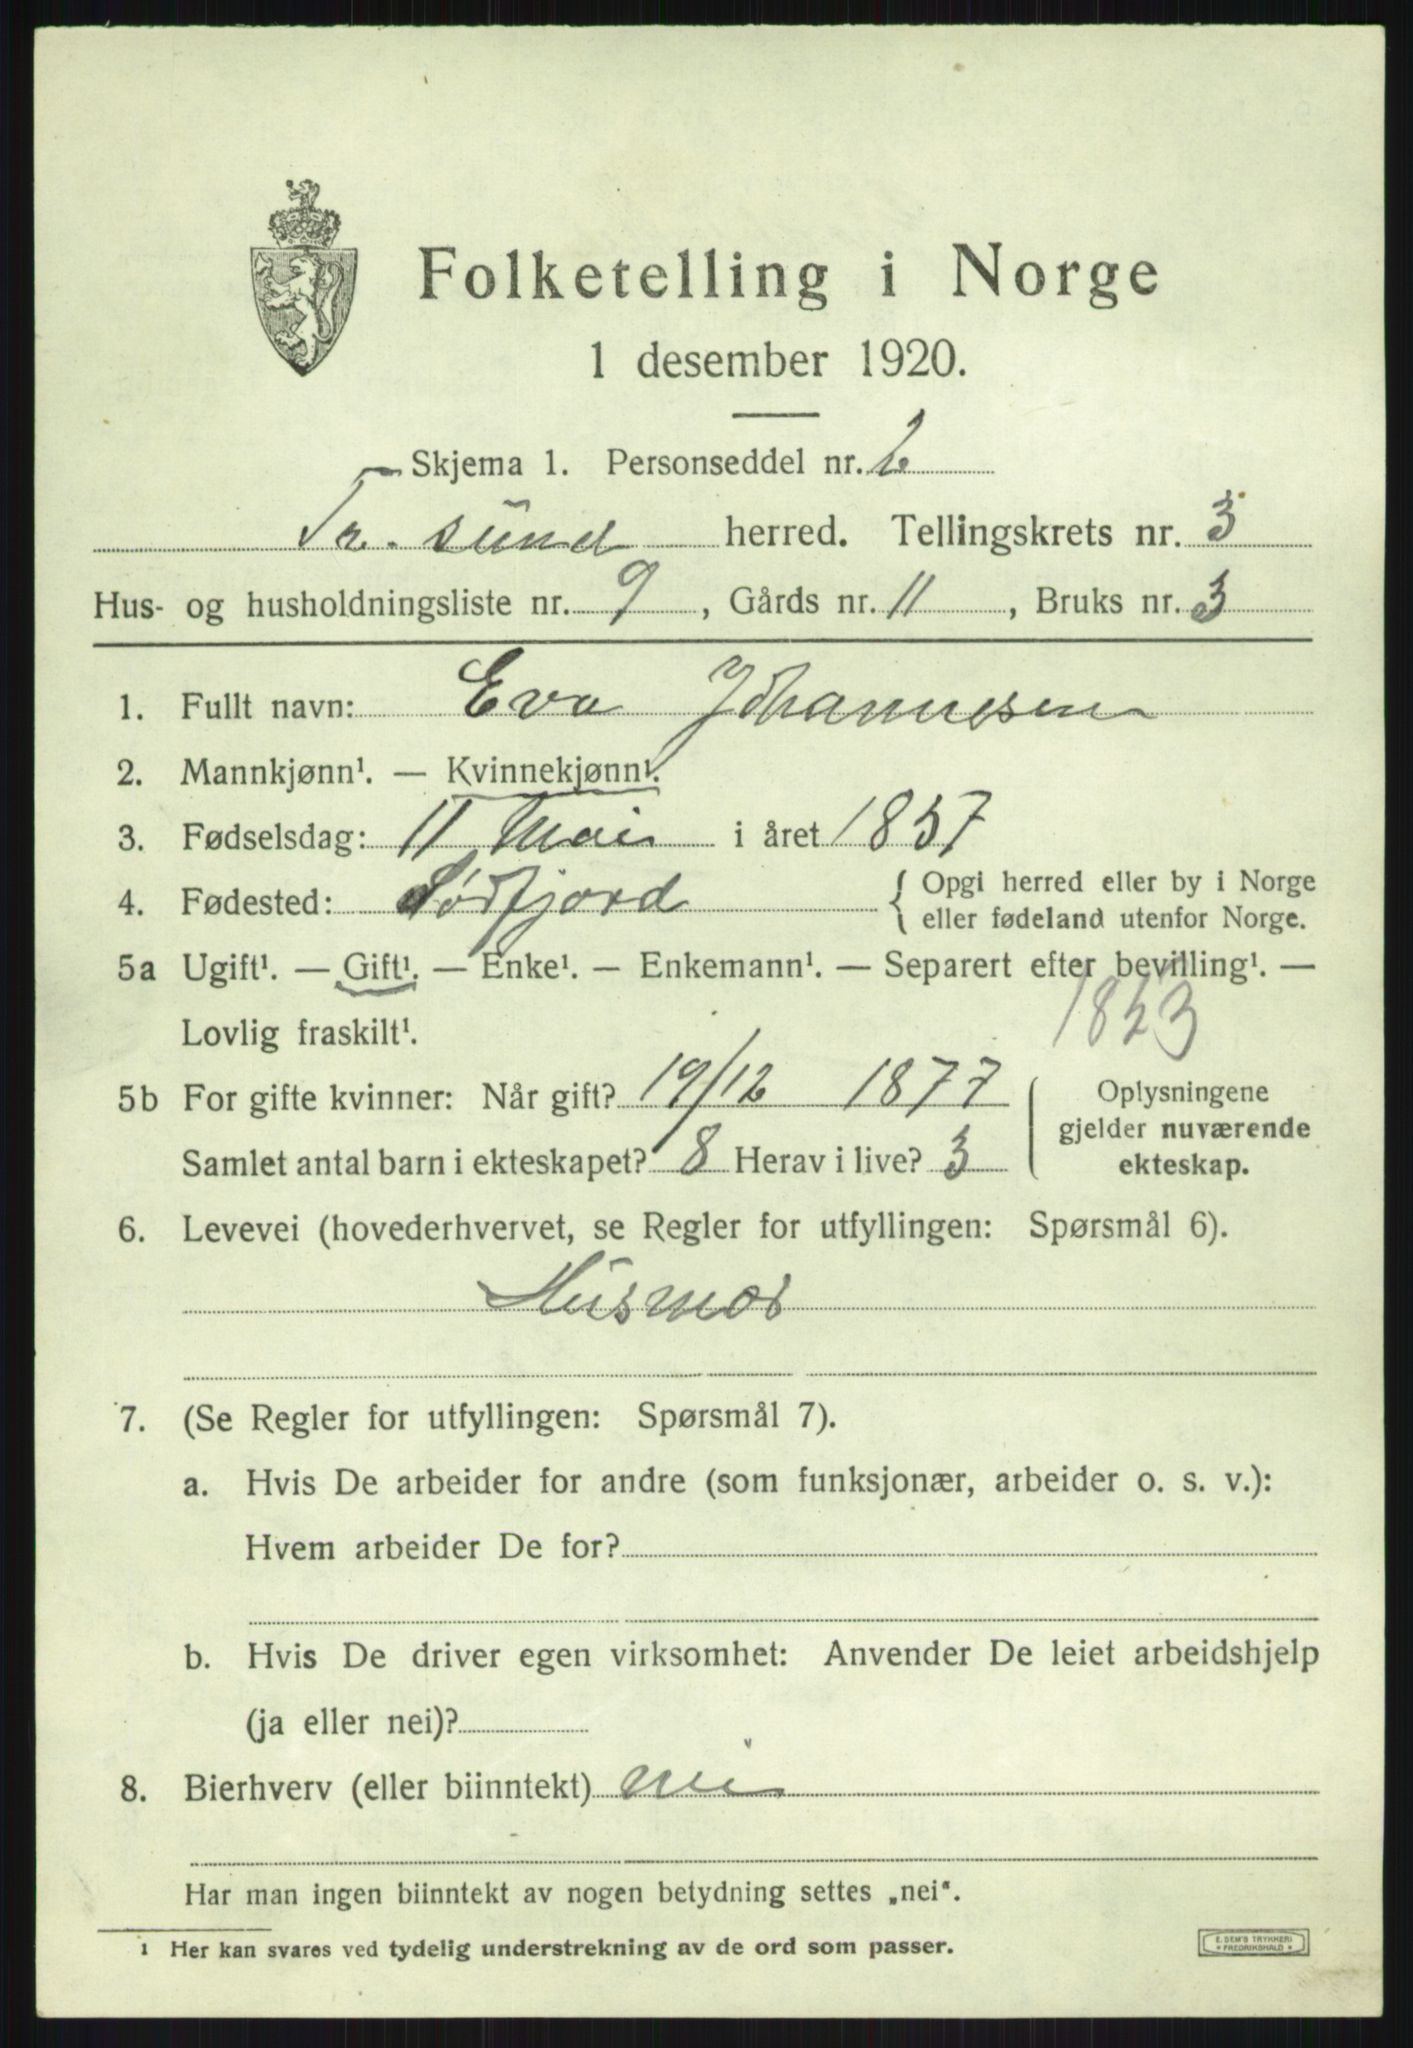 Folketelling i Norge
1 desember 1920.
Skjema 1. Personseddel nr. 2
Tr. sund herred. Tellingskrets nr. 3
Hus- og husholdningsliste nr. 9, Gårds nr. 11, Bruks nr. 3
1. Fullt navn: Eva Johannesen
2. Mannkjønn¹. — Kvinnekjønn¹.
3. Fødselsdag: 11 Mai i året 1857
4. Fødested: Sørfjord { Opgi herred eller by i Norge
eller fødeland utenfor Norge.
5a Ugift¹. — Gift¹. — Enke¹. — Enkemann¹. — Separert efter bevilling¹. —
Lovlig fraskilt¹. 1853
5b For gifte kvinner: Når gift? 19/12 1877 ( Oplysningene
gjelder nuværende
Samlet antal barn i ekteskapet? 8 Herav i live? 3 ekteskap.
6. Levevei (hovederhvervet, se Regler for utfyllingen: Spørsmål 6).
Husmor
7. (Se Regler for utfyllingen: Spørsmål 7).
a. Hvis De arbeider for andre (som funksjonær, arbeider o. s. v.):
Hvem arbeider De for?
b. Hvis De driver egen virksomhet: Anvender De leiet arbeidshjelp
(ja eller nei)?
8. Bierhverv (eller biinntekt) nei
Har man ingen biinntekt av nogen betydning settes „nei“.
¹ Her kan svares ved tydelig understrekning av de ord som passer.
E. SEM'S TRYKKERI
* FREDRIKSHALD *